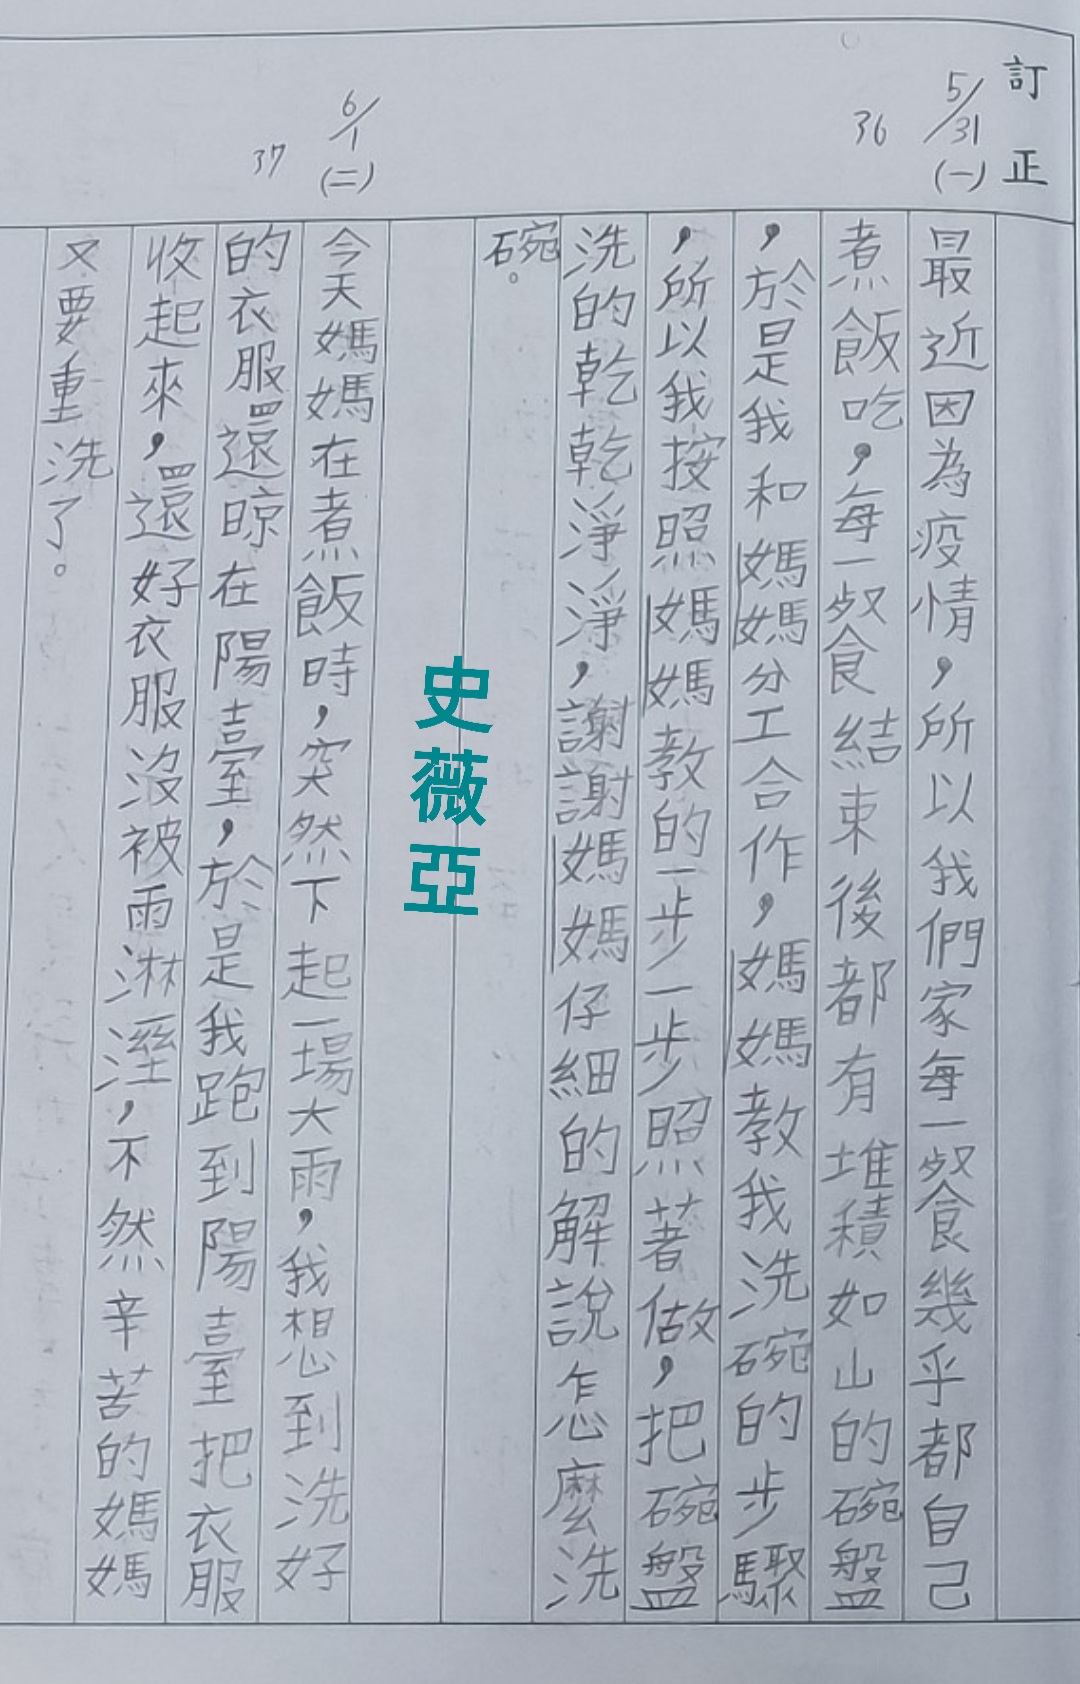 訂正
5/31(一)
36
最近因為疫情，所以我們家每一餐幾乎都自己
煮飯吃，每一餐結束後都有堆積如山的碗盤
，於是我和媽媽分工合作，媽媽教我洗碗的步驟
，所以我按照媽媽教的一步一步照著做，把碗盤
洗的乾乾淨淨，謝謝媽媽仔細的解說怎麼洗
碗。
史薇亞
6/1(二)
37
今天媽媽在煮飯時，突然下起一場大雨，我想到洗好
的衣服還晾在陽臺，於是我跑到陽臺把衣服
收起來，還好衣服沒被雨淋溼，不然辛苦的媽媽
又要重洗了。